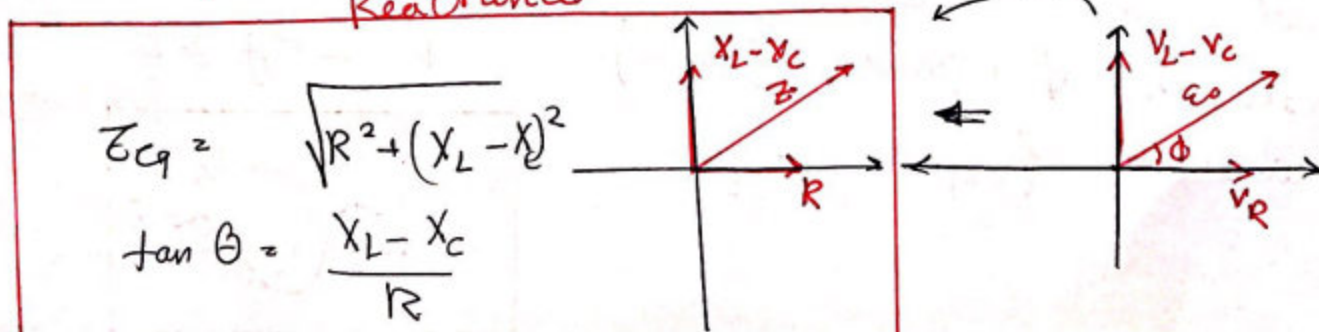 Reactance
Zeq = √R² + (X_L - X_C)²
tan θ = X_L - X_C / R
X_L - X_C
Z
R
V_L - V_C
ε₀
ϕ
V_R